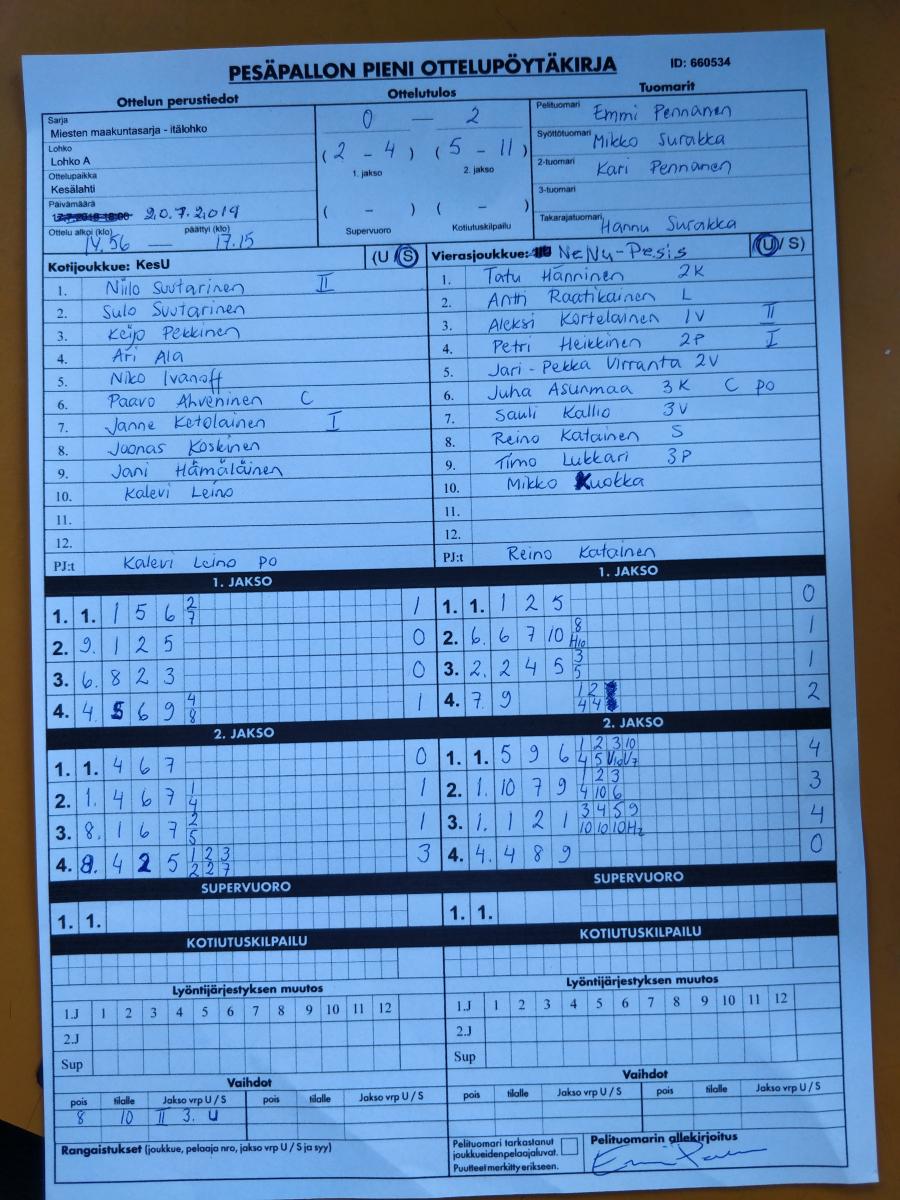 PESÄPALLON PIENI OTTELUPÖYTÄKIRJA ID: 660534
Ottelun perustiedot Ottelutulos Tuomarit
Sarja
Miesten maakuntasarja - itälohko
Lohko
Lohko A
Ottelupaikka
Kesälahti
Päivämäärä
20.7.2019
Ottelu alkoi (klo) päättyi (klo)
14.56 — 17.15
0 — 2
(2 - 4) (5 - 11)
1. jakso 2. jakso
( - ) ( - )
Supervuoro Kotiutuskilpailu
Pelituomari Emmi Pennanen
Syöttötuomari Mikko Surakka
2-tuomari Kari Pennanen
3-tuomari
Takarajatuomari Hannu Surakka
Kotijoukkue: KesU (U / S)
1. Niilo Suutarinen II
2. Sulo Suutarinen
3. Keijo Pekkinen
4. Ari Ala
5. Niko Ivanoff
6. Paavo Ahveninen C
7. Janne Ketolainen I
8. Joonas Koskinen
9. Jani Hämäläinen
10. Kalevi Leino
11.
12.
PJ:t Kalevi Leino po
Vierasjoukkue: NeNy-Pesis (U / S)
1. Tatu Hänninen 2K
2. Antti Raatikainen L
3. Aleksi Kortelainen 1V II
4. Petri Heikkinen 2P I
5. Jari-Pekka Virranta 2V
6. Juha Asunmaa 3K C po
7. Sauli Kallio 3V
8. Reino Katainen S
9. Timo Lukkari 3P
10. Mikko Kuokka
11.
12.
PJ:t Reino Katainen
1. JAKSO
1. 1. 1 5 6 2 1
7
2. 9. 1 2 5 0
3. 6. 8 2 3 0
4. 4. 5 6 9 4 1
8
2. JAKSO
1. 1. 4 6 7 0
2. 1. 4 6 7 1 1
4
3. 8. 1 6 7 2 1
5
4. 8. 4 2 5 1 2 3 3
2 2 7
SUPERVUORO
1. 1.
KOTIUTUSKILPAILU
1. JAKSO
1. 1. 1 2 5 0
2. 6. 6 7 10 8 1
H10
3. 2. 2 4 5 3 1
5
4. 7. 9 1 2 2
4 4
2. JAKSO
1. 1. 5 9 6 1 2 3 10 4
4 5 V10 V7
2. 1. 10 7 9 1 2 3 3
4 10 6
3. 1. 1 2 1 3 4 5 9 4
10 10 10 H2
4. 4. 4 8 9 0
SUPERVUORO
1. 1.
KOTIUTUSKILPAILU
Lyöntijärjestyksen muutos
1.J 1 2 3 4 5 6 7 8 9 10 11 12
2.J
Sup
Lyöntijärjestyksen muutos
1.J 1 2 3 4 5 6 7 8 9 10 11 12
2.J
Sup
Vaihdot
pois tilalle Jakso vrp U / S pois tilalle Jakso vrp U / S
8 10 II 3. U
Vaihdot
pois tilalle Jakso vrp U / S pois tilalle Jakso vrp U / S
Rangaistukset (joukkue, pelaaja nro, jakso vrp U / S ja syy)
Pelituomari tarkastanut
joukkueidenpelaajaluvat.
Puutteet merkitty erikseen.
Pelituomarin allekirjoitus